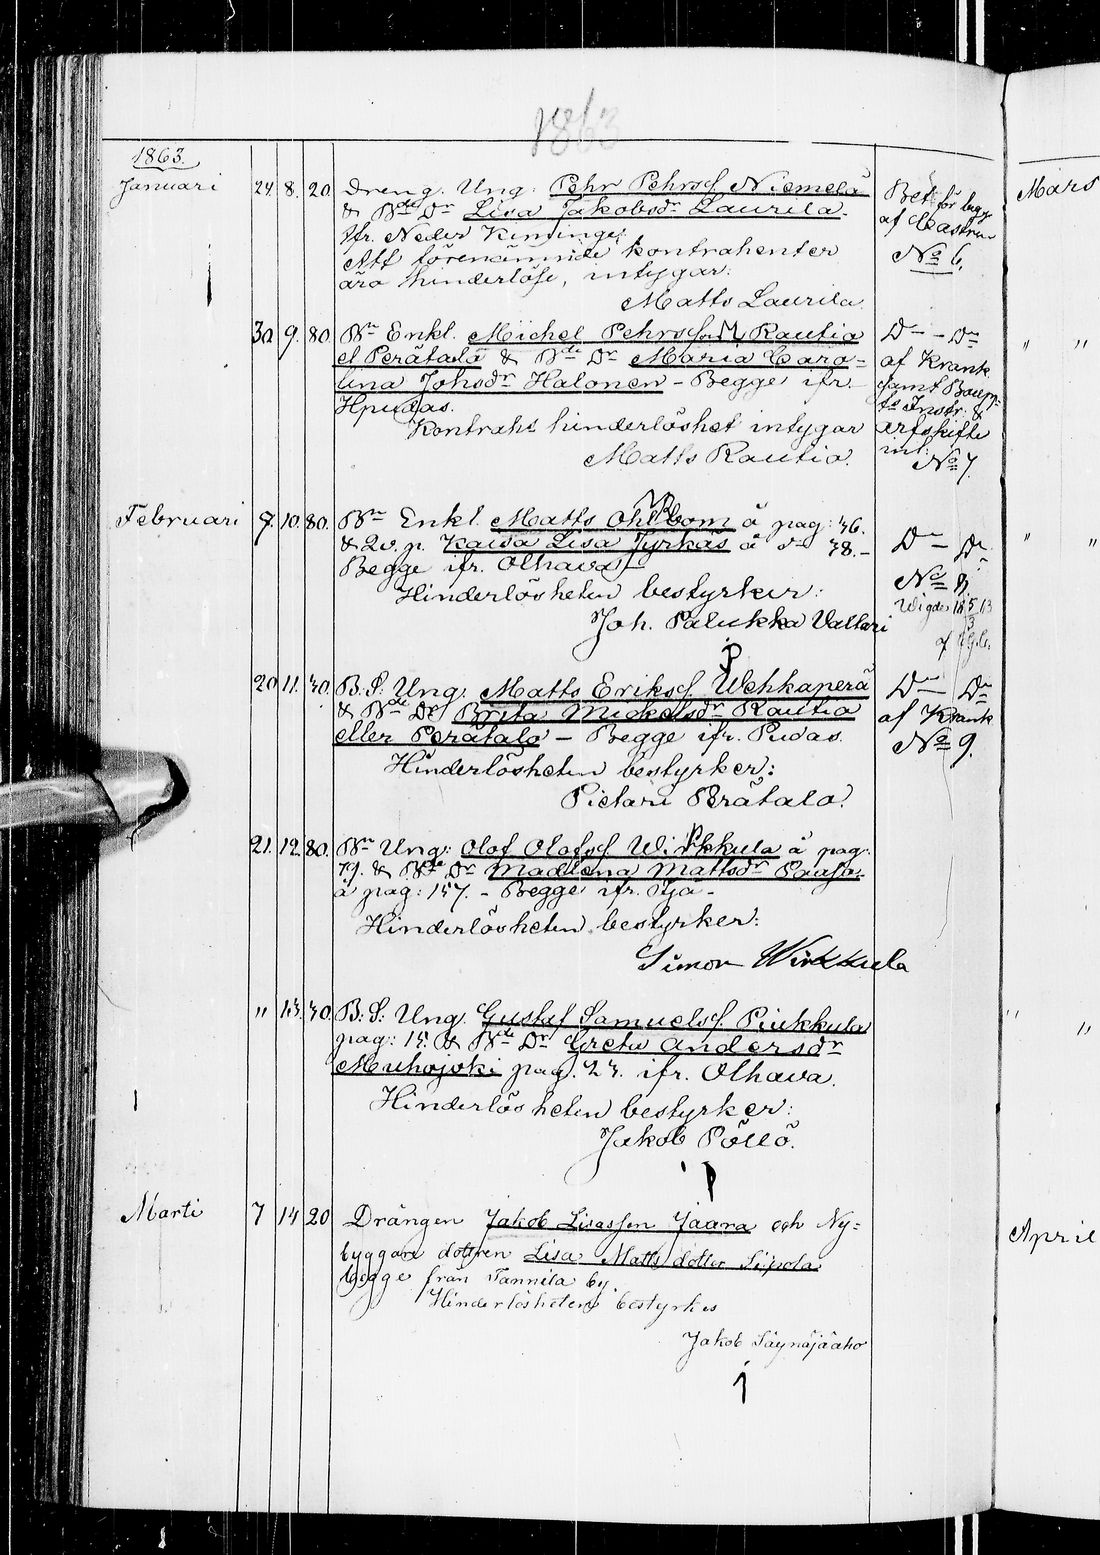 1863
1863.
Januari 24 8. 20. Dreng. Ung. Pehr Pehrss. Niemelä
& Bde Dr Lisa Jakobsdr Laurila.
ifr. Neder Kiminge:
Att förenämnde kontrahenter
äro hinderlöse, intygar:
Matts Laurila
Bet för lagg
af Castren
No 6.
30. 9. 80. Bn Enkl. Michel Pehrsson Rautia
el Perätalo & Bde Dr Maria Caro-
lina Johsdr Halonen - Begge ifr.
Hpudas.
Kontrahs hinderlöshet intygar
Matts Rautio.
Do - Do
af Krank
samt Boupp-
ts Instr. &
arfskifte
No 7.
Februari 7. 10. 80. Bn Enkl. Matts Ohlbom å pag: 36.
& Qv. p. Kaisa Lisa Tyrkäs å do 38. -
Begge ifr. Olhava -
Hinderlösheten bestyrker:
Joh. Palukka Valtari
Do - Do
No 8.
20 11. 30. B. S: Ung. Matts Erikss. Wehkaperä
& Bde Dr Brita Mickelsdr Rautia
eller Perätalo - Begge ifr. Pudas.
Hinderlösheten bestyrker:
Pietari Perätalo.
Do - Do
af Krank
No 9.
21. 12. 80. Bn Ung: Olof Olofss Wirkkula å pag:
79. & Bde Dr Madlena Mattsdr Paaso.
å pag: 157. - Begge ifr. Ijo -
Hinderlösheten bestyrker:
Simon Wirkkula
" 13. 30. B: S: Ung. Gustaf Samuelss. Piukkula
pag: 15. & Bde Dr Greta Andersdr
Muhojoki pag. 23. ifr. Olhava.
Hinderlösheten bestyrker:
Jakob Pöllö.
Marti 7 14 20 Drängen Jakob Lisasson Jaara och Ny-
byggare dottren Lisa Matts dotter Sipola
begge från Tannila by.
Hinderlösheten bestyrkes
Jakob Säynäjäaho
Mars
" "
" "
" "
April